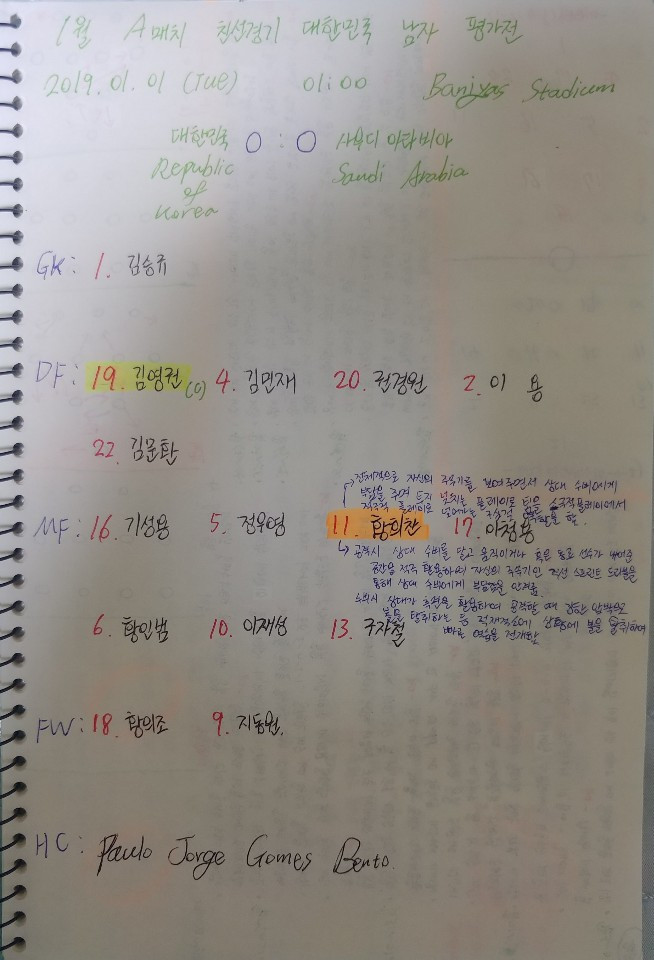 1월 A매치 친선경기 대한민국 남자 평가전
2019. 01. 01 (Tue) 01:00 Baniyas Stadium
대한민국 0 : 0 사우디 아라비아
Republic of Korea Saudi Arabia
GK: 1. 김승규
DF: 19. 김영권 (C) 4. 김민재 20. 권경원 2. 이 용
22. 김문환
→ 전체적으로 자신의 주무기를 보여주면서 상대 수비에게
부담을 주며 투지 넘치는 플레이로 팀을 소극적플레이에서
적극적 플레이로 넘어가는 역할을 함.
MF: 16. 기성용 5. 정우영 11. 황희찬 17. 이청용
↳ 공격시 상대 수비를 달고 움직이거나 혹은 동료 선수가 비워준
공간을 적극 활용하여 자신의 주무기인 직선 스프린트 드리블을
통해 상대 수비에게 부담감을 안겨줌.
수비시 상대가 측면을 활용하여 공격할 때 강한 압박으로
볼을 탈취하는 등 적재적소에 상황에 볼을 탈취하여
빠른 역습을 전개함
6. 황인범 10. 이재성 13. 구자철
FW: 18. 황의조 9. 지동원.
HC: Paulo Jorge Gomes Bento.